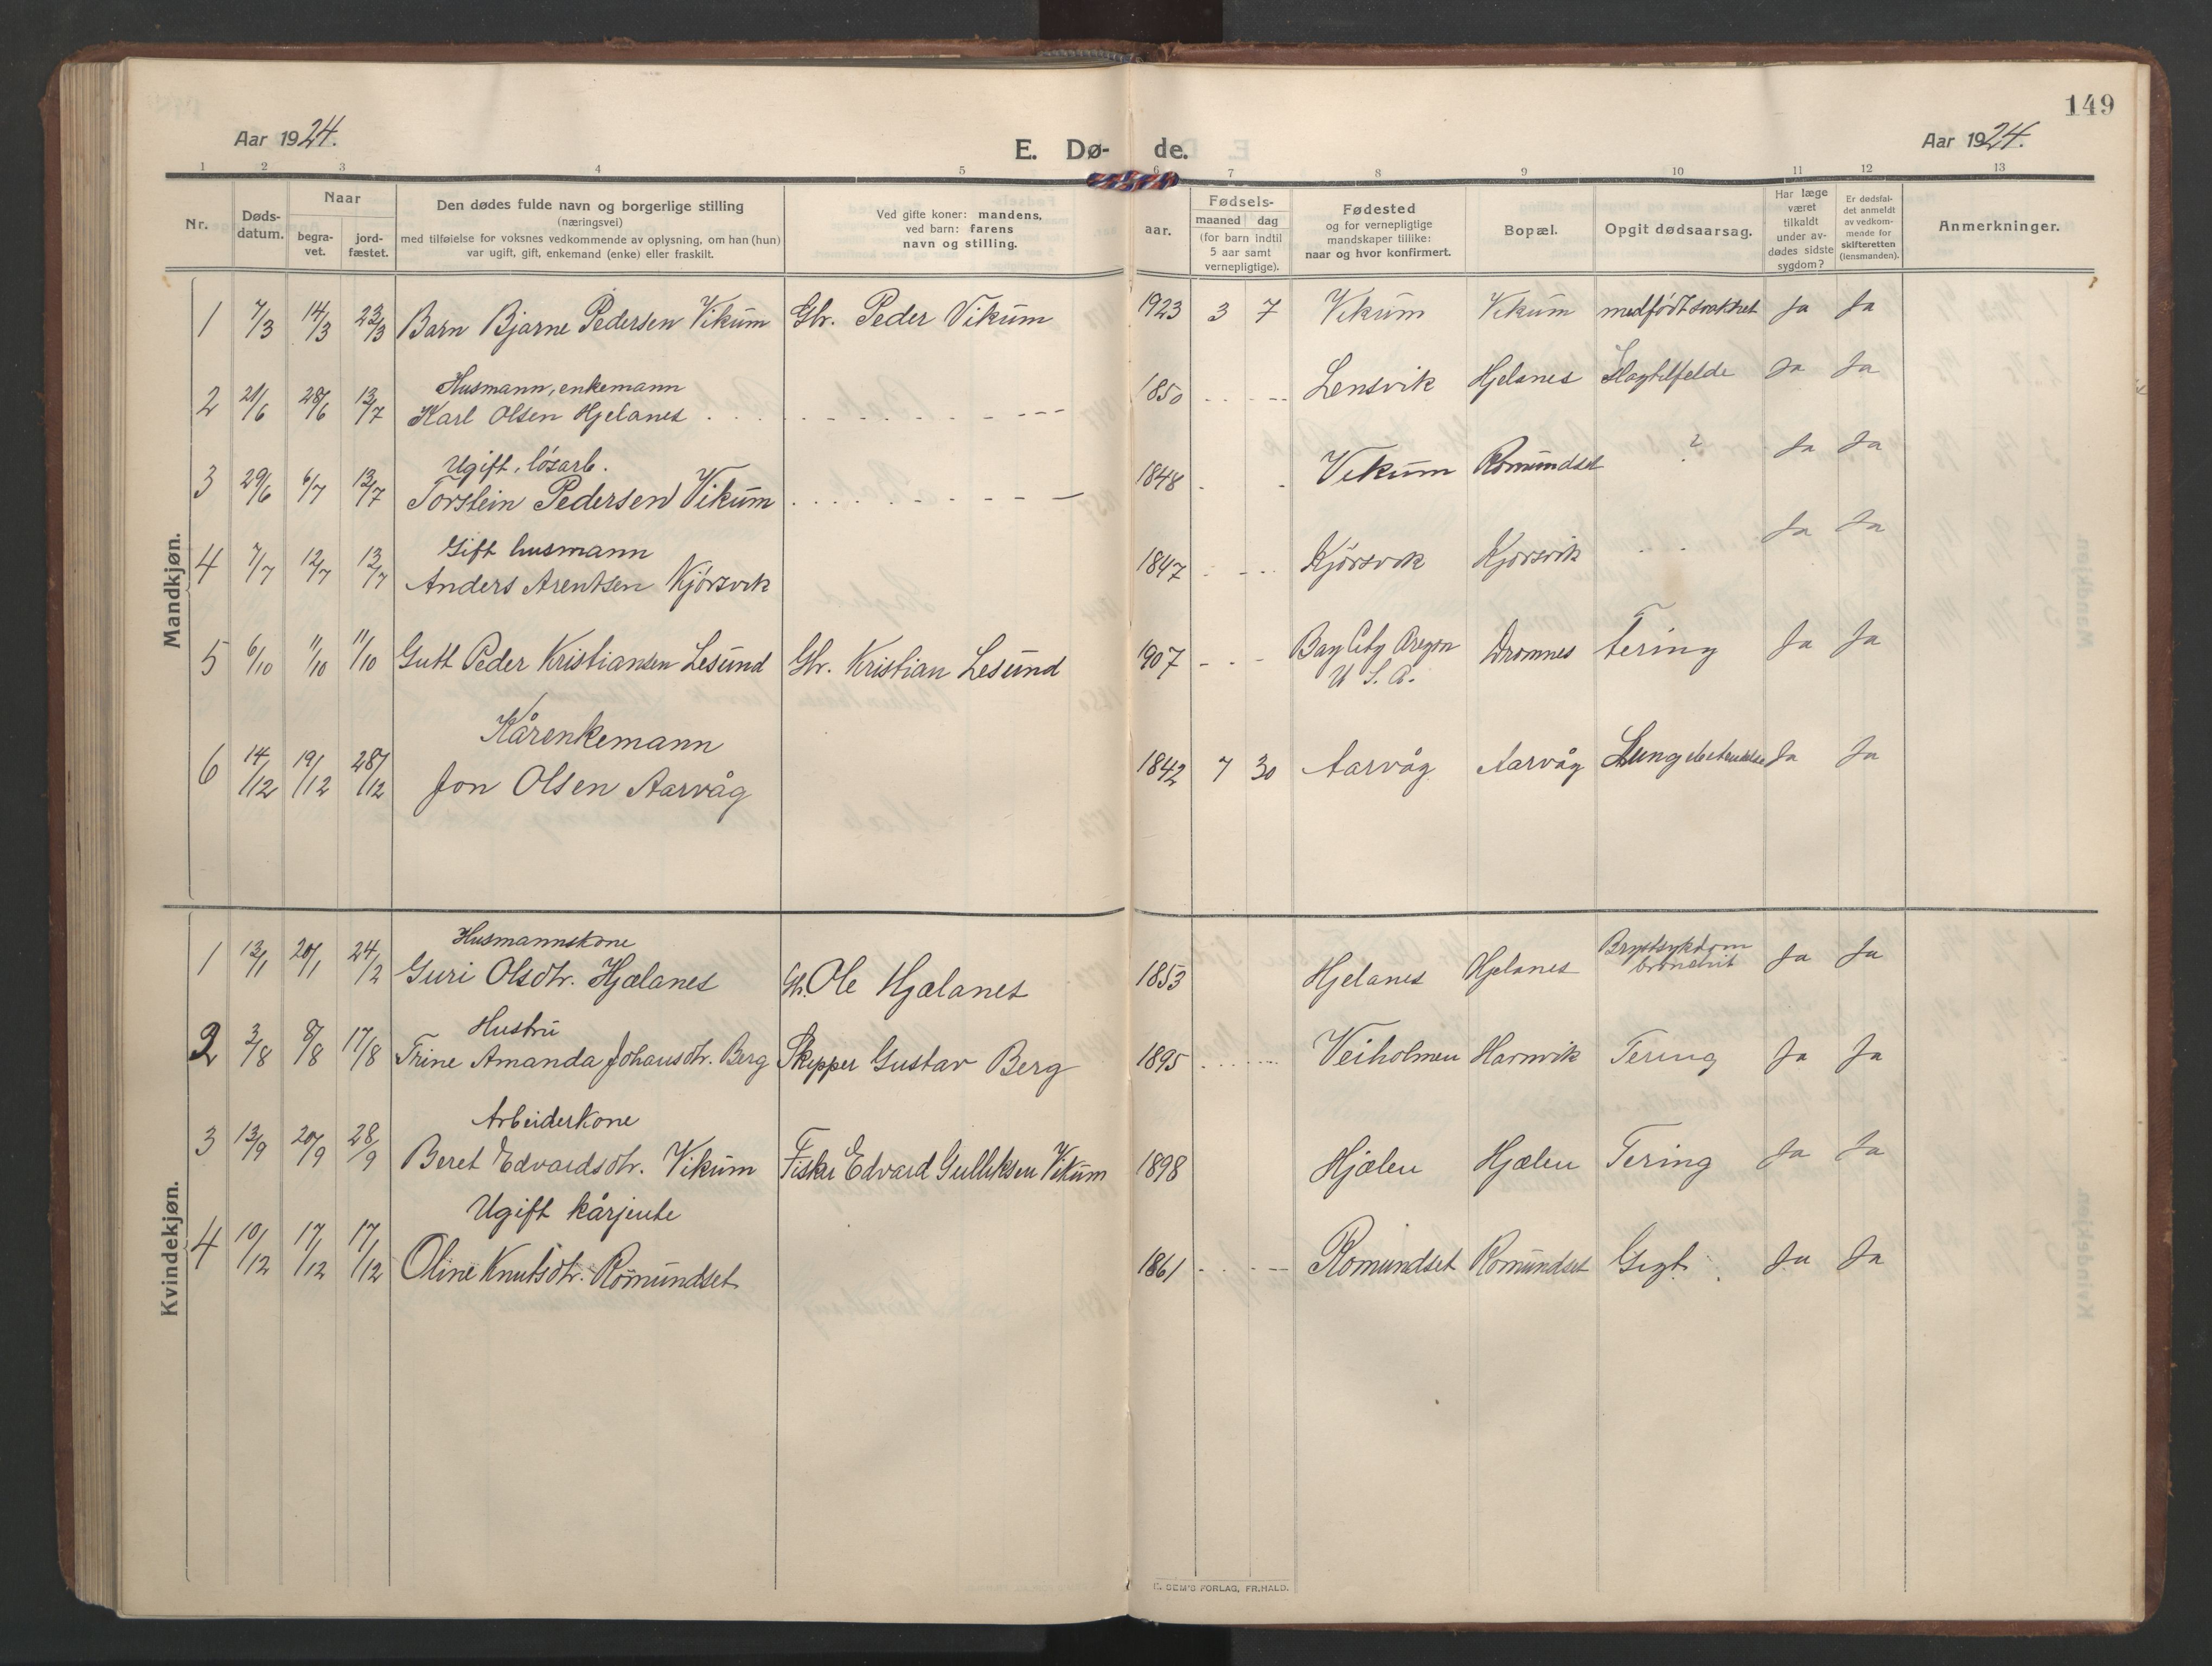 149
Aar 1924.
E. Dø-
de.
Aar 1924.
1 2 3 4 5 6 7 8 9 10 11 12 13
Nr.
Døds-
datum.
Naar
begra-
vet.
jord-
fæstet.
Den dødes fulde navn og borgerlige stilling
(næringsvei)
med tilføielse for voksnes vedkommende av oplysning, om han (hun)
var ugift, gift, enkemand (enke) eller fraskilt.
Ved gifte koner: mandens,
ved barn: farens
navn og stilling.
Fødsels-
aar.
maaned dag
(for barn indtil
5 aar samt
vernepligtige).
Fødested
og for vernepligtige
mandskaper tillike:
naar og hvor konfirmert.
Bopæl.
Opgit dødsaarsag.
Har læge
været
tilkaldt
under av-
dødes sidste
sygdom?
Er dødsfal-
det anmeldt
av vedkom-
mende for
skifteretten
(lensmanden).
Anmerkninger.
Mandkjøn.
1 7/3 14/3 23/3 Barn Bjarne Pedersen Vikum Gbr. Peder Vikum 1923 3 7 Vikum Vikum medfødt svakhet Ja Ja
Husmann, enkemann
2 21/6 28/6 13/7 Karl Olsen Hjelanes 1850 Lensvik Hjelanes Slagtilfelde Ja Ja
Ugift, løsarb.
3 29/6 6/7 13/7 Torstein Pedersen Vikum 1848 Vikum Romundset ? Ja Ja
Gift husmann
4 7/7 12/7 13/7 Anders Arentsen Kjørsvik 1847 Kjørsvik Kjørsvik Ja Ja
5 6/10 11/10 11/10 Gutt Peder Kristiansen Lesund Gbr. Kristian Lesund 1907 Bay City Oregon Dromnes Tering Ja Ja
U S. A.
Kårenkemann
6 14/12 19/12 28/12 Jon Olsen Aarvåg 1842 7 30 Aarvåg Aarvåg Ja Ja
Kvindekjøn.
Husmannskone
1 13/1 20/1 24/2 Guri Olsdtr. Hjælanes Gbr. Ole Hjælanes 1853 Hjelanes Hjelanes Brystsykdom Ja Ja
bronchit
Hustru
2 3/8 8/8 17/8 Trine Amanda Johansdtr. Berg Skipper Gustav Berg 1895 Veiholmen Hamvik Tering Ja Ja
Arbeiderkone
3 13/9 20/9 28/9 Beret Edvardsdtr. Vikum Fisker Edvard Gulliksen Vikum 1898 Hjælen Hjælen Tering Ja Ja
Ugift kårjente
4 10/12 17/12 17/12 Oline Knutsdtr. Romundset 1861 Romundset Romundset Gigt Ja Ja
E. SEM'S FORLAG, FR.HALD.